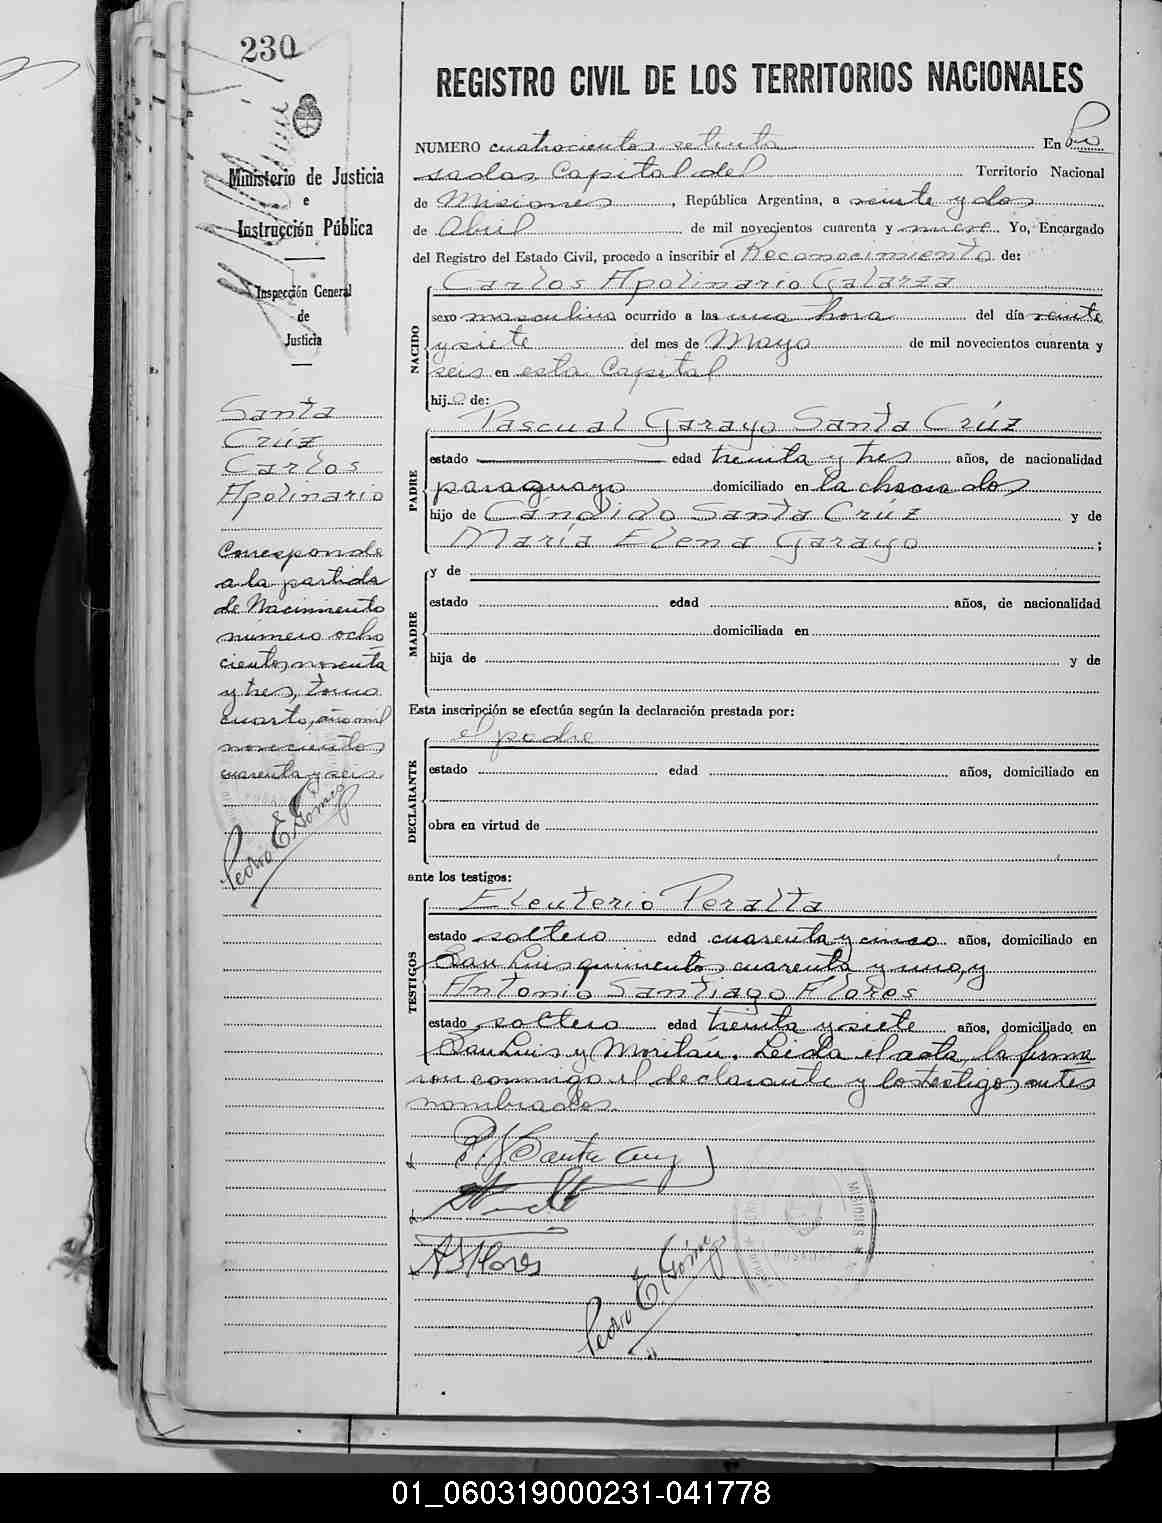 230
Ministerio de Justicia
e
Instrucción Pública
Inspección General
de
Justicia
Santa
Crúz
Carlos
Apolinario
Corresponde
a la partida
de Nacimiento
número ocho
cientos noventa
y tres, tomo
cuarto, año mil
novecientos
cuarenta y seis.
Pedro E Gómez
REGISTRO CIVIL DE LOS TERRITORIOS NACIONALES
NUMERO cuatrocientos setenta En Po
sadas Capital del Territorio Nacional
de Misiones, República Argentina, a veinte y dos
de Abril de mil novecientos cuarenta y nueve. Yo, Encargado
del Registro del Estado Civil, procedo a inscribir el Reconocimiento de:
NACIDO
Carlos Apolinario Galarza
sexo masculino ocurrido a las una hora del día veinte
y siete del mes de Mayo de mil novecientos cuarenta y
seis en esta Capital
hijo de:
PADRE
Pascual Garayo Santa Crúz
estado edad treinta y tres años, de nacionalidad
paraguayo domiciliado en la chacra dos
hijo de Cándido Santa Crúz y de
María Elena Garayo;
MADRE
y de
estado edad años, de nacionalidad
domiciliada en
hija de y de
Esta inscripción se efectúa según la declaración prestada por:
DECLARANTE
el padre
estado edad años, domiciliado en
obra en virtud de
ante los testigos:
TESTIGOS
Eleuterio Peralta
estado soltero edad cuarenta y cinco años, domiciliado en
San Luis quinientos cuarenta y uno, y
Antonio Santiago Flores
estado soltero edad treinta y siete años, domiciliado en
San Luis y Moritán. Leida el acta, la firma
ron conmigo el declarante y los testigos antes
nombrados.
P. G Santa Cruz
A S Flores
Pedro E Gómez
MISIONES
POSADAS
01_060319000231-041778